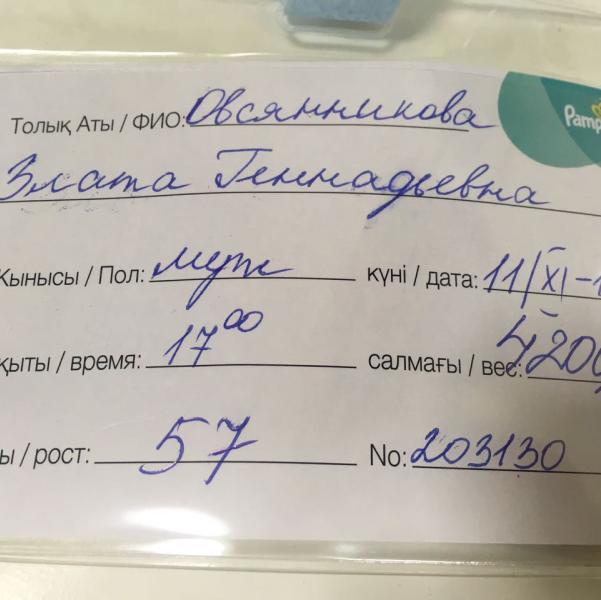 Pamp
Толық Аты / ФИО: Овсянникова
Злата Геннадьевна
Қынысы / Пол: муж күні / дата: 11/XI-1
қыты / время: 17 00 салмағы / вес: 4200
ы / рост: 57 No: 203130